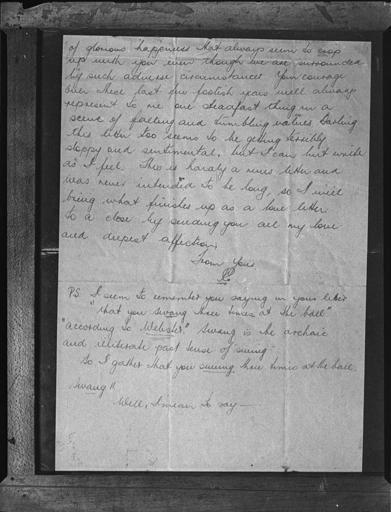 of glorious happiness that always seem to crop
up with you even though we are surrounded
by such adverse circumstances. Your courage
over these last few foolish years will always
represent to me one steadfast thing in a
scene of falling and tumbling values. Darling
this letter too seems to be getting terribly
sloppy and sentimental, but I can but write
as I feel. This is hardly a news letter and
was never intended to be long, so I will
bring what finishes up as a love letter
to a close by sending you all my love
and deepest affection,
From Your
P.S. I seem to remember you saying in your letter
"that you swang three times at the ball"
"according to Webster" Swang is the archaic
and illiterate past tense of swing
So I gather that you swung three times at the ball.
Swang!!
Well, I mean to say —